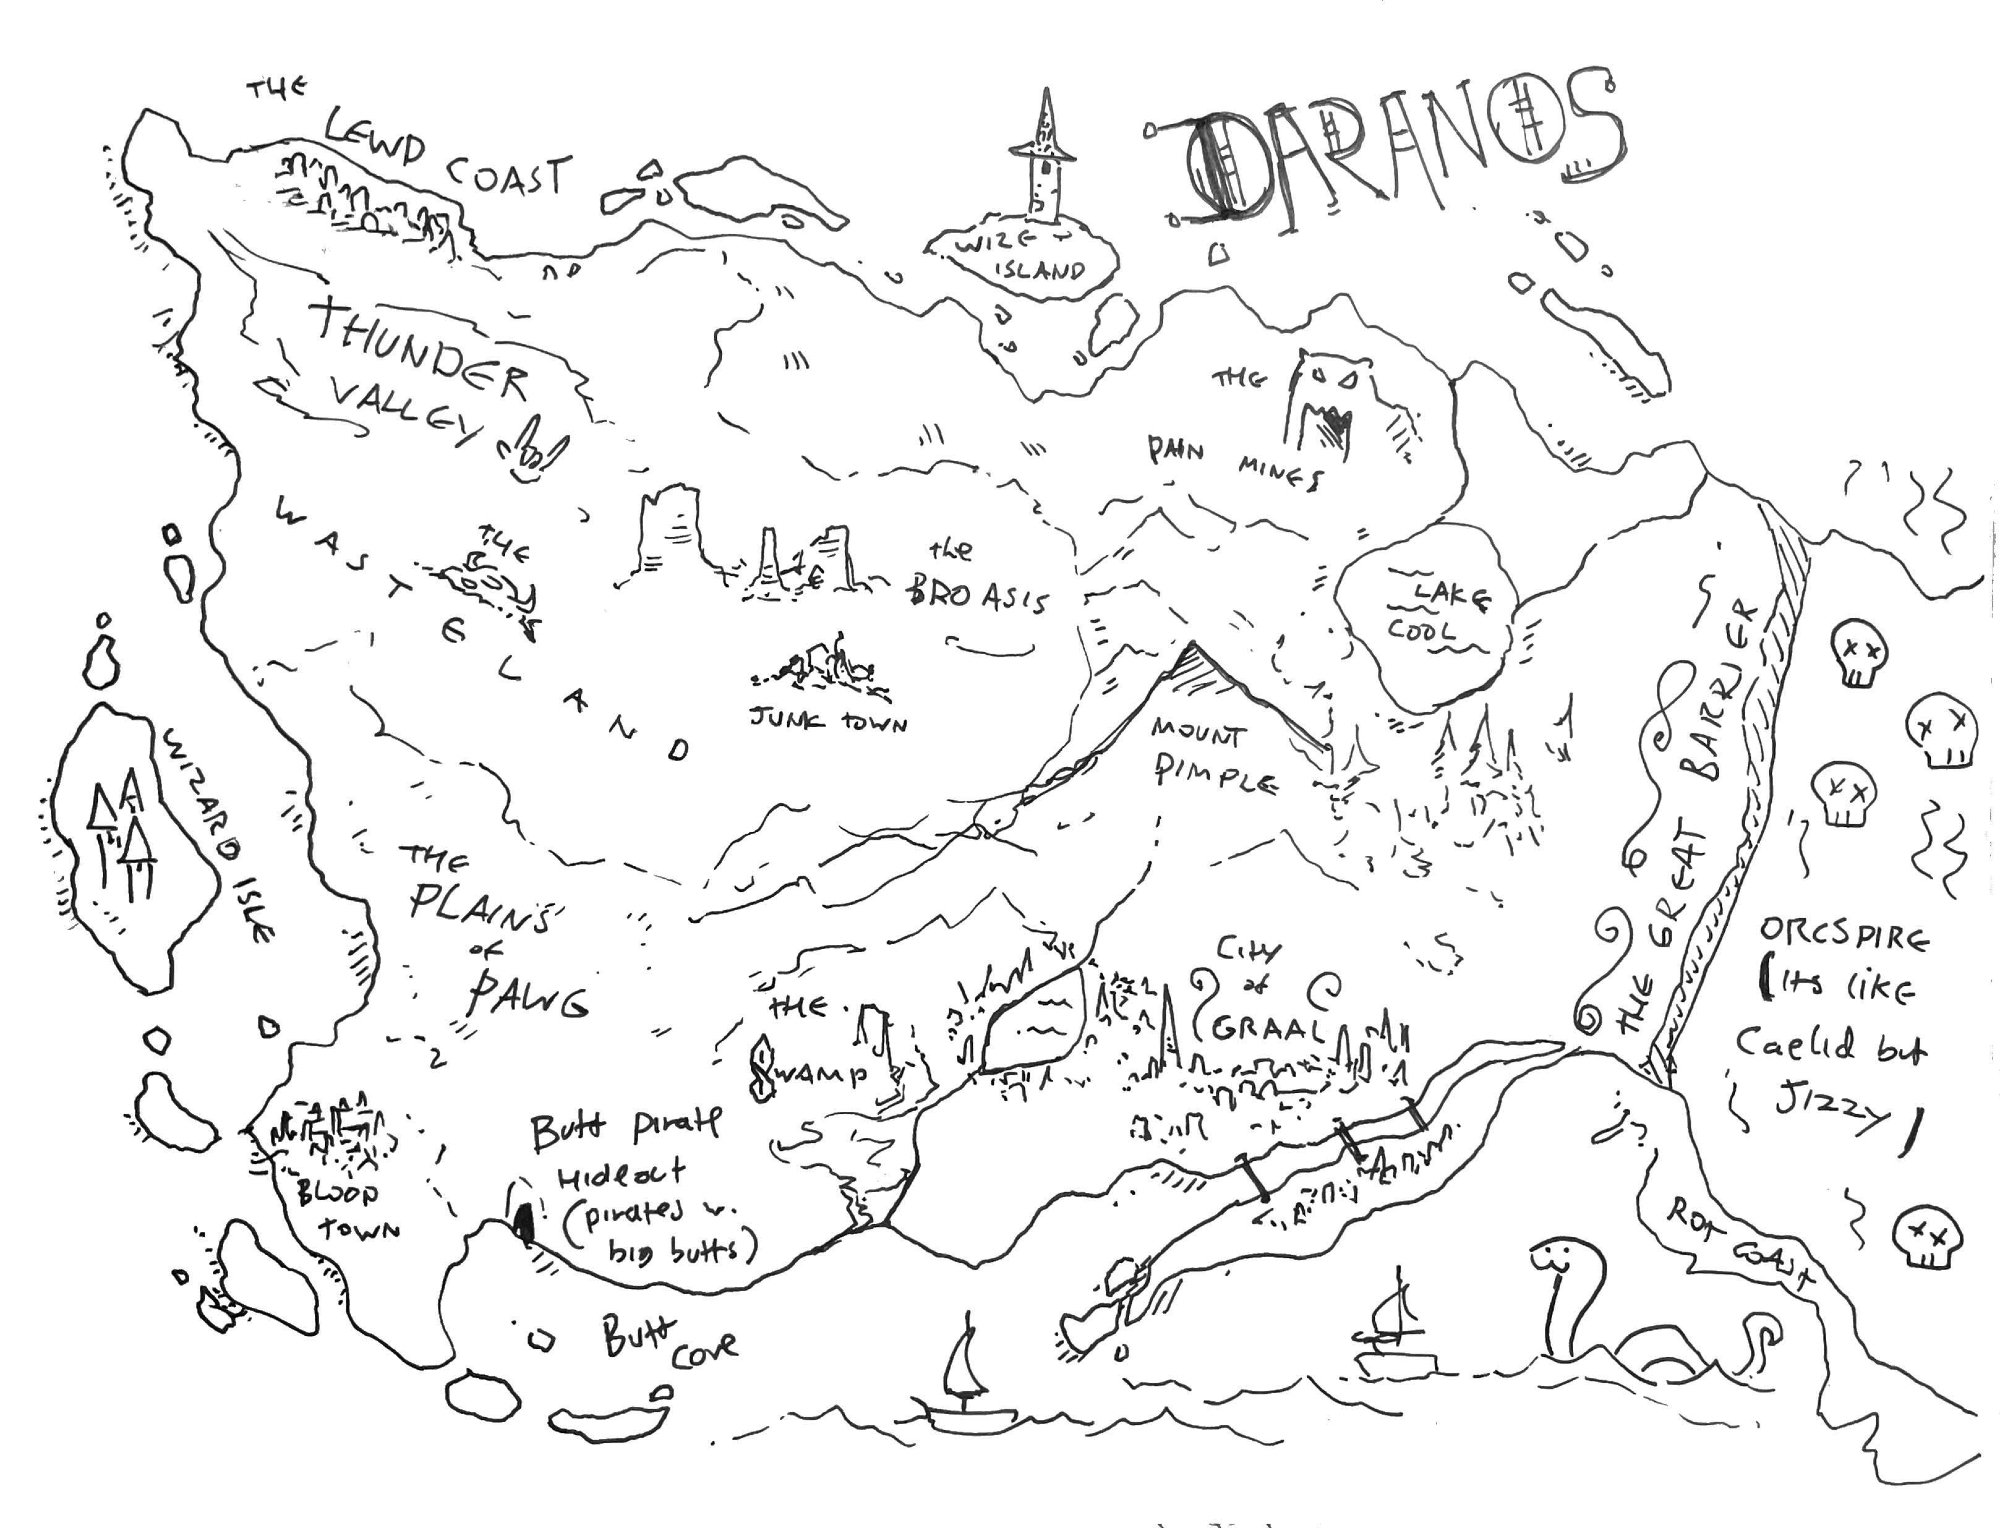 THE
LEWD COAST
DARANOS
WIZE
ISLAND
THUNDER
VALLEY
THE
PAIN MINES
THE
WASTELAND
the
BROASIS
LAKE
COOL
JUNK TOWN
MOUNT
PIMPLE
THE GREAT BARRIER
WIZARD ISLE
THE
PLAINS
of
PAWG
THE
SWAMP
CITY
of
GRAAL
ORCSPIRE
(its like
Caelid but
Jizzy)
Butt Pirate
Hideout
(pirates w.
big butts)
BLOOD
TOWN
ROT COAST
Butt
Cove